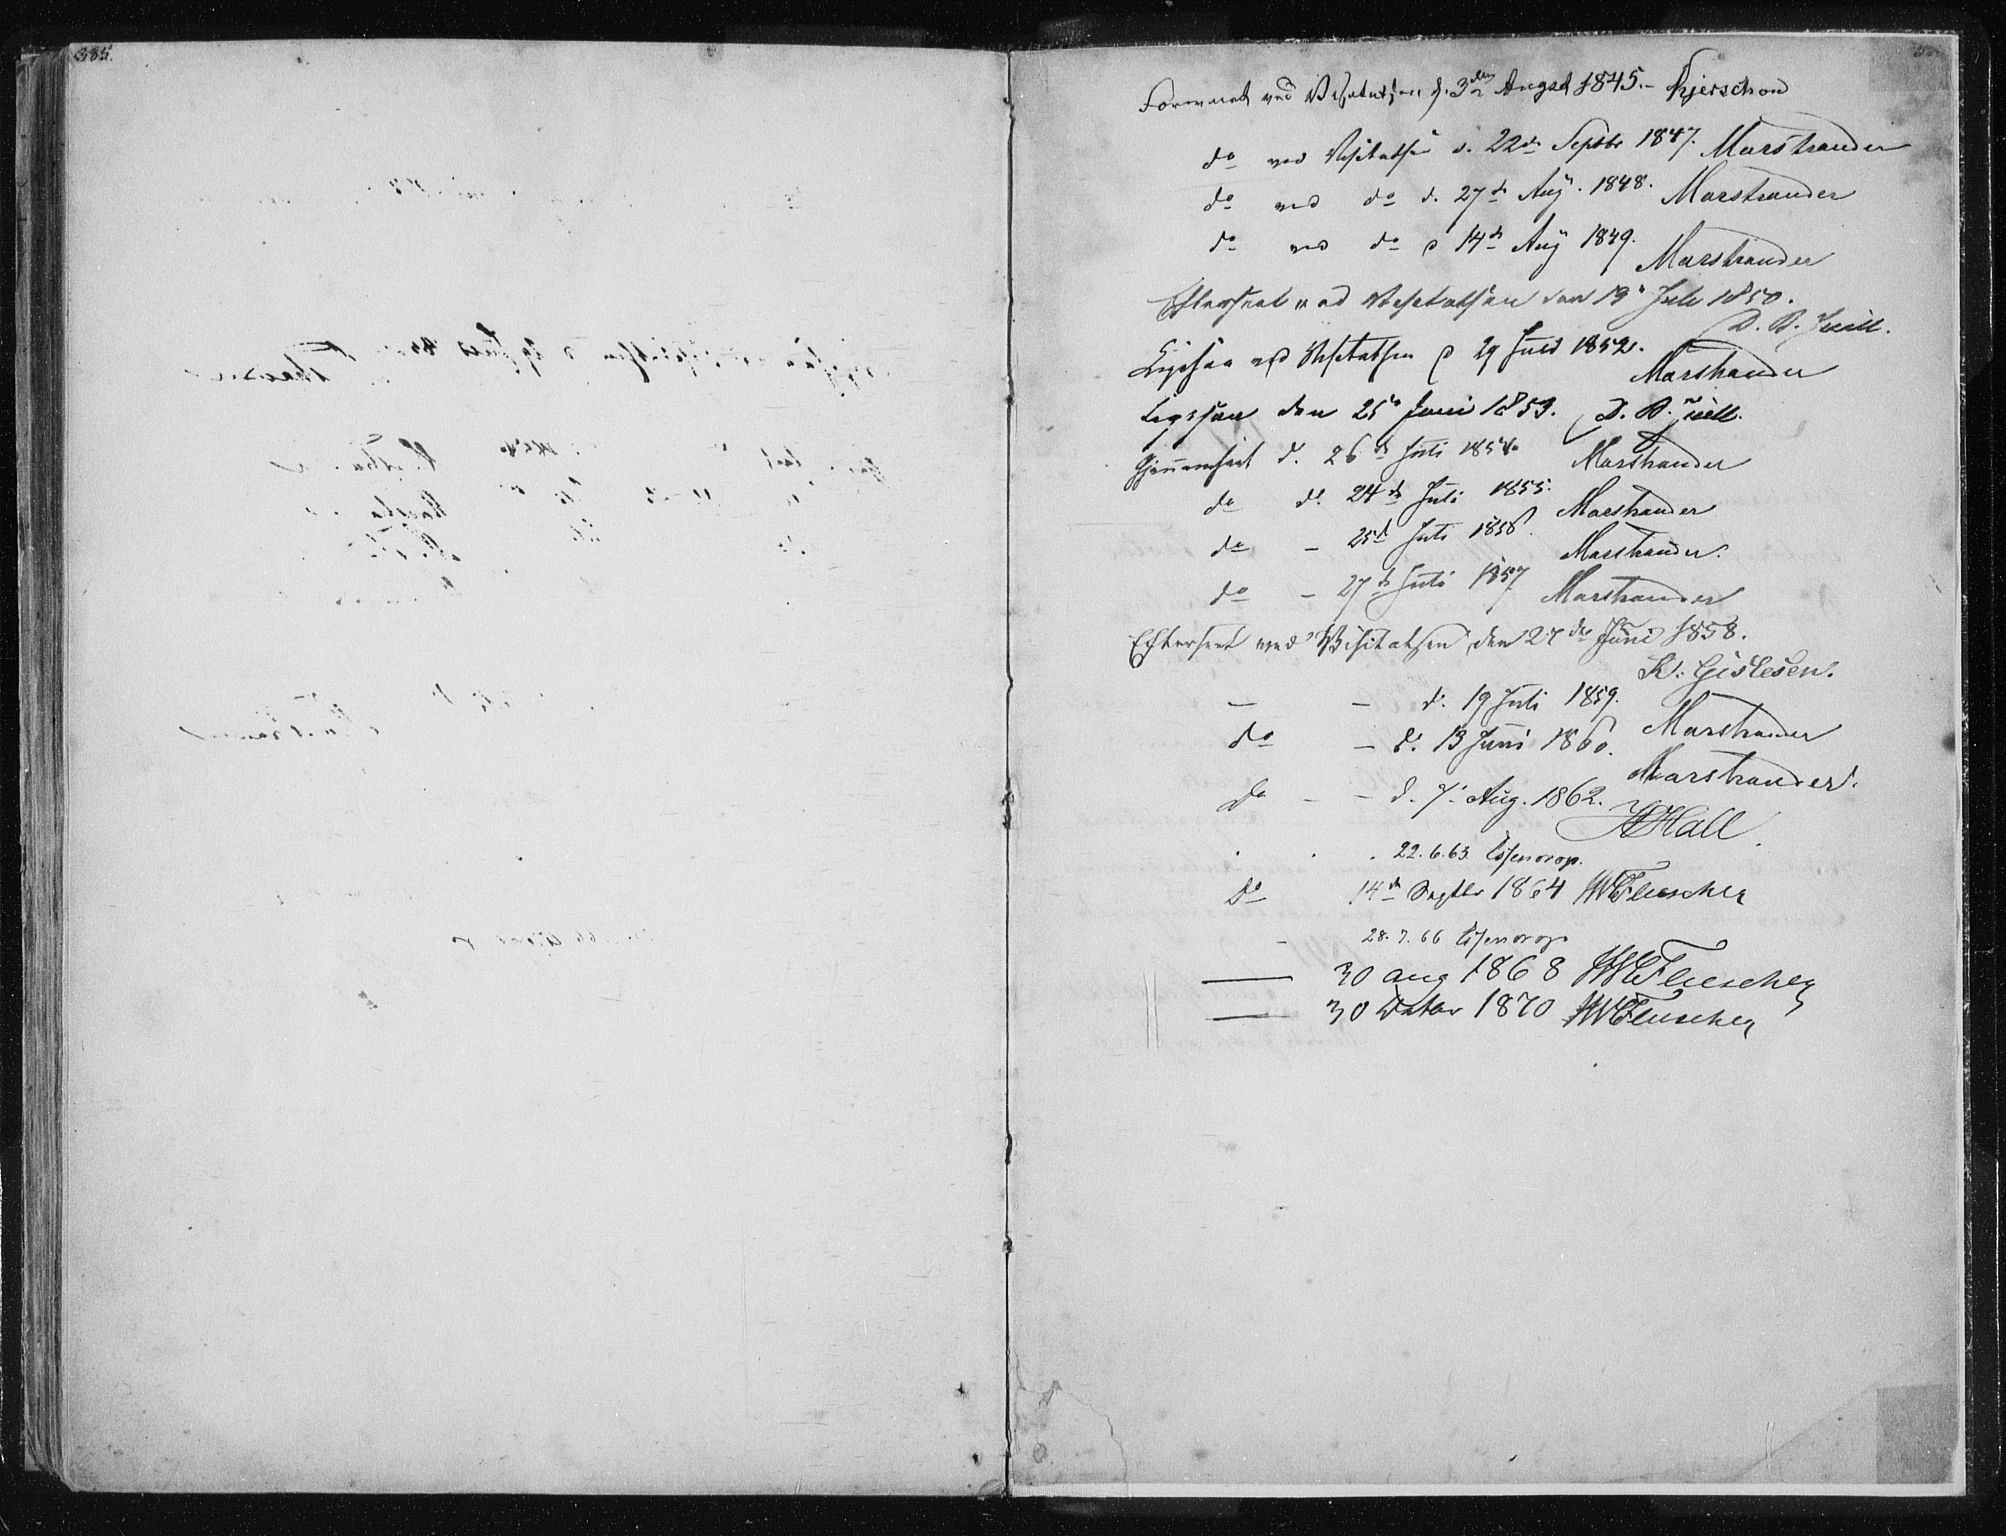 385.
Forevist ved Visitatsen d. 3den August 1845. – Kjerschow
do ved Visitatsen d. 22de Septbr 1847. Marstrander
do ved do d. 27de Aug. 1848. Marstrander
do ved do d 14de Aug 1849. Marstrander
Efterseet ved Visitatsen den 19de Juli 1850.
D. B. Juell.
Ligesaa ved Visitatsen d 29 Juli 1852.
Marstrander
Ligesaa den 25de Juni 1853. D. B. Juell.
Gjennemseet d. 26de Juli 1854. Marstrander
do d. 24de Juli 1855. Marstrander
do – 25de Juli 1856. Marstrander.
do – 27de Juli 1857 Marstrander
Efterseet ved Visitatsen den 27de Juni 1858.
K. Gislesen.
– – d. 19 Juli 1859. Marstrander
do – d. 13 Juni 1860. Marstrander.
Do – – d. 7. Aug. 1862. Hall.
. . . 22.6.63. Essendrop.
Do 14de Septbr 1864 Fleischer
– 28.7.66 Essendrop
— 30 aug 1868 Fleischer
— 30 Octbr 1870 Fleischer